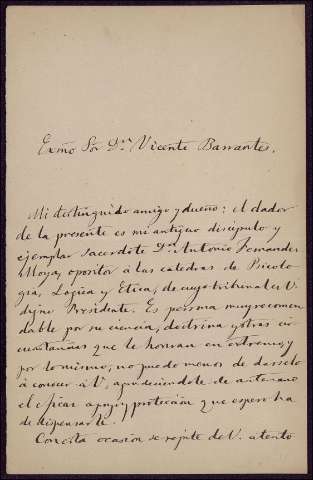 Exmo Sor Dn Vicente Barrantes.
Mi distinguido amigo y dueño: el dador
de la presente es mi antiguo discípulo y
ejemplar sacerdote Dn Antonio Fernandez
Moya, opositor á las catedras de Psicolo-
gía, Lógica y Etica, de cuyo tribunal es V.
digno Presidente. Es persona muy recomen-
dable por su ciencia, doctrina y otras cir-
cunstancias que le honran en extremo; y
por lo mismo, no puedo menos de darselo
á conocer á V., agradeciendole de antemano
el eficaz apoyo y protección que espero ha
de dispensarle.
Con esta ocasión se repite de V. atento